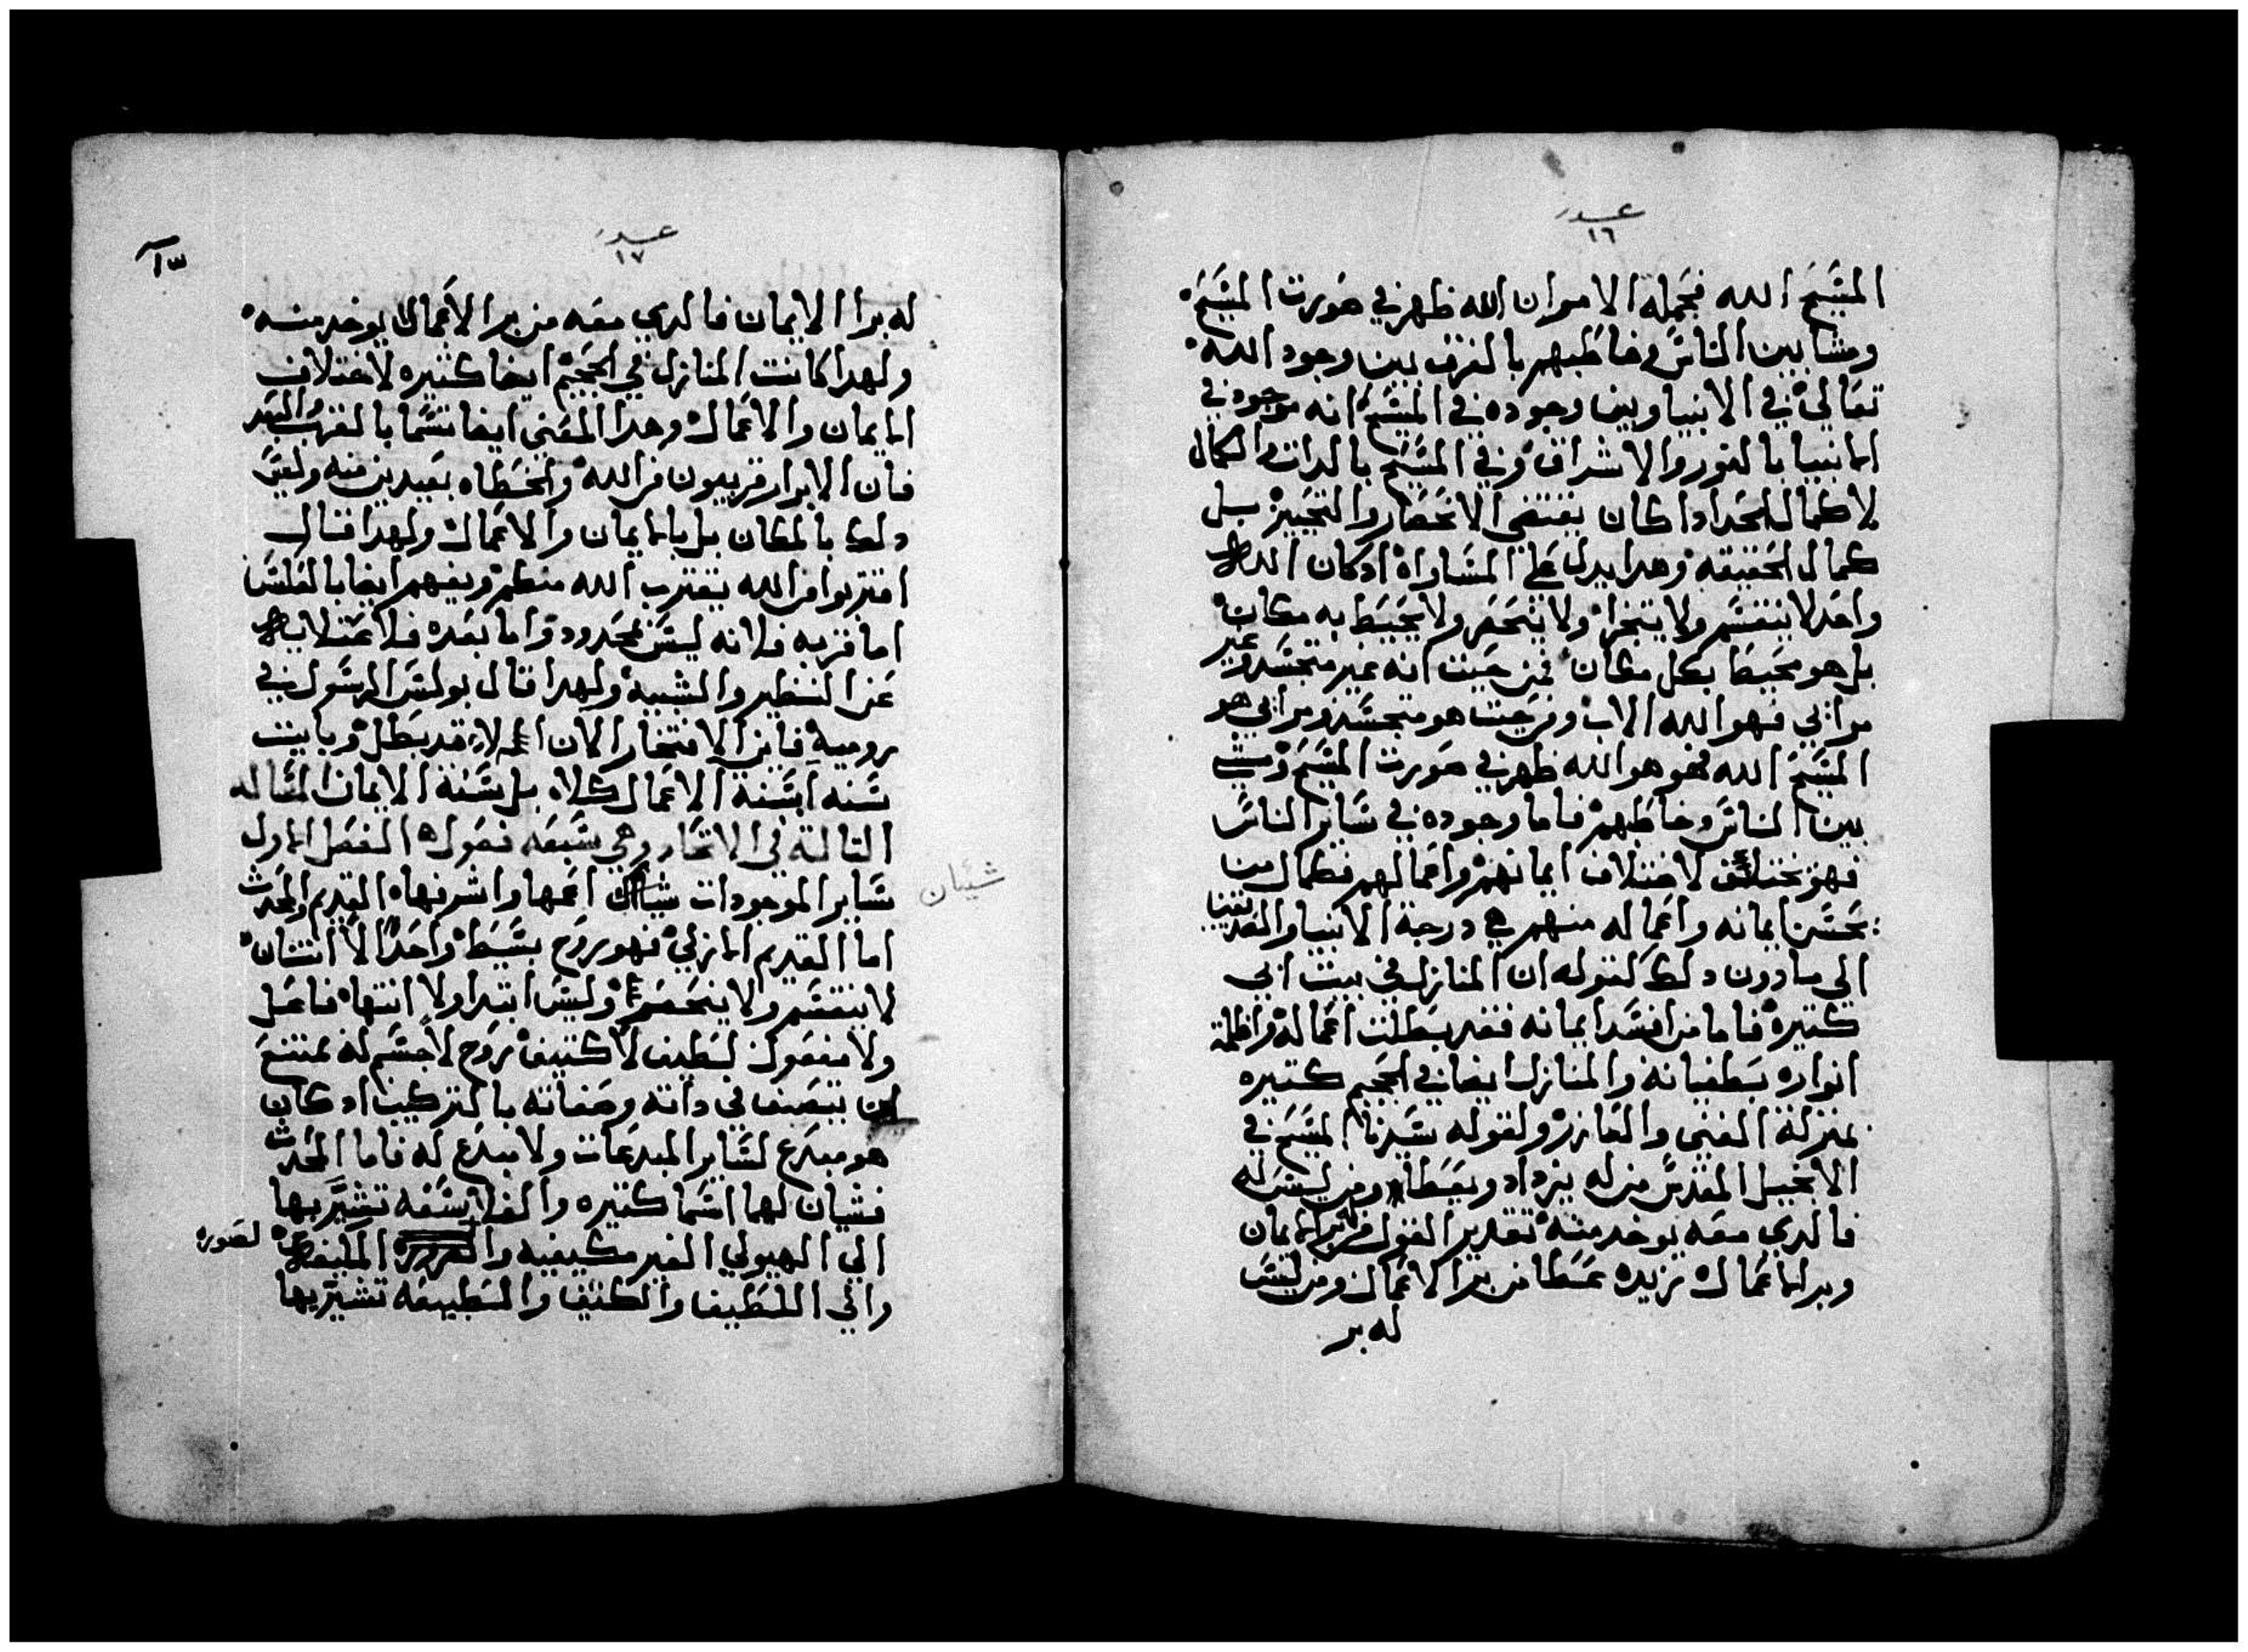 عدد
١٦
المسَيَح الله فجَملة الامر ان الله ظهر في صَورت المسَيَح
ومشا بين الناسَ وخاطَبهم بالفرق بين وجود الله
تعَالي في الانبيا وبين وجوده في المسَيَح انه موجود في
الانبيا بالنور والاشراق وفي المسَيَح بالدات والكمال
لا كمال الحَد ادا كان يقتضي الانحَصَار والتحَييز بل
كمال الحَقيقه وهدا يدل علي المسَاواه ادكان الله
واحَد لا ينقسَم ولا يتجزا ولا ينحَصَر ولا يحَيط به مكان
بل هو محَيط بكل مكان فمن حَيت انه غير متجسَد وغير
مرا ي فهو الله الاب ومن حَيت هو متجسَد ومرا ي هو
المسَيَح الله فهو هو الله ظهر في صَورت المسَيَح ومشي
بين الناسَ وخاطَبهم فاما وجوده في سَاير الناسَ
فهو مختلف لاختلاف ايمانهم واعَمالهم فكمال من
يحَسَن ايمانه واعَماله منهم في درجة الانبيا والصَديقين
الي ما دون دلك كقوله ان المنازل في بيت ابي
كتيرة فاما من افسَد ايمانه فقد بطَلت اعَماله واظلمة
انواره بطَغيانه والمنازل ايضا في الجحَيم كتيره
بمنزلة الغني والعَازر ولقوله سَيدنا المسَيَح في
الانجيل المقدسَ من له يزداد ويعَطَا ومن ليسَ له
فالدي معَه يوخد منه تقدير القول من له بر الايمان
وبر الاعَمال نزيده عَطَا من بر الاعَمال ومن ليسَ
له بر
عدد
١٧
له بر الايمان فالدي معَه من بر الاعَمال يوخد منه
ولهدا كانت المنازل في الجحَيم ايضا كتيره لاختلاف
الايمان والاعَمال وهدا المعَني ايضا تسَما بالقرب والبعَد
فان الابرار قريبون من الله والخطَاه بعَيدين منه وليسَ
دلك بالمكان بل بالايمان والاعَمال ولهدا قال
اقتربوا من الله يقترب الله منكم ويفهم ايضا بالعَكسَ
اما قربه فلانه ليسَ بمحَدود واما بعَده فلا
عَن النظير والشبيه ولهدا قال بولسَ الرسَول في
رومية فاين الافتخار الان قد بطَل وبايت
سَنه ابسَنة الاعَمال كلاه بل بسَنة الايمان المسَاله
التالتة في الاتحَاد وهي سَبعَه فصَول الفصَل الاول
سَاير الموجودات شيان اعَمها واشرفها القديم والمحَدث
شئيان
اما القديم الازلي فهو روحَ بسَيط واحَد لا اتنان
لا ينقسَم ولا ينحَصَر وليسَ ابتدا ولا انتها فاعَل
ولا مفعَول لطَيف لا كتيف روحَ لا جسَم له ممتنع
ان يتصَف في داته وصَفاته بالتركيب ادكان
هو مبدع لسَاير المبدعَات ولا مبدع له فاما المحَدث
فشيان لهما اسَما كتيره والفلاسَفه تشير بها
الي الهيولي الغير مكيفيه والصَوره
لصَوره
والي اللطَيف والكتيف والطَبيعَه تشير بها